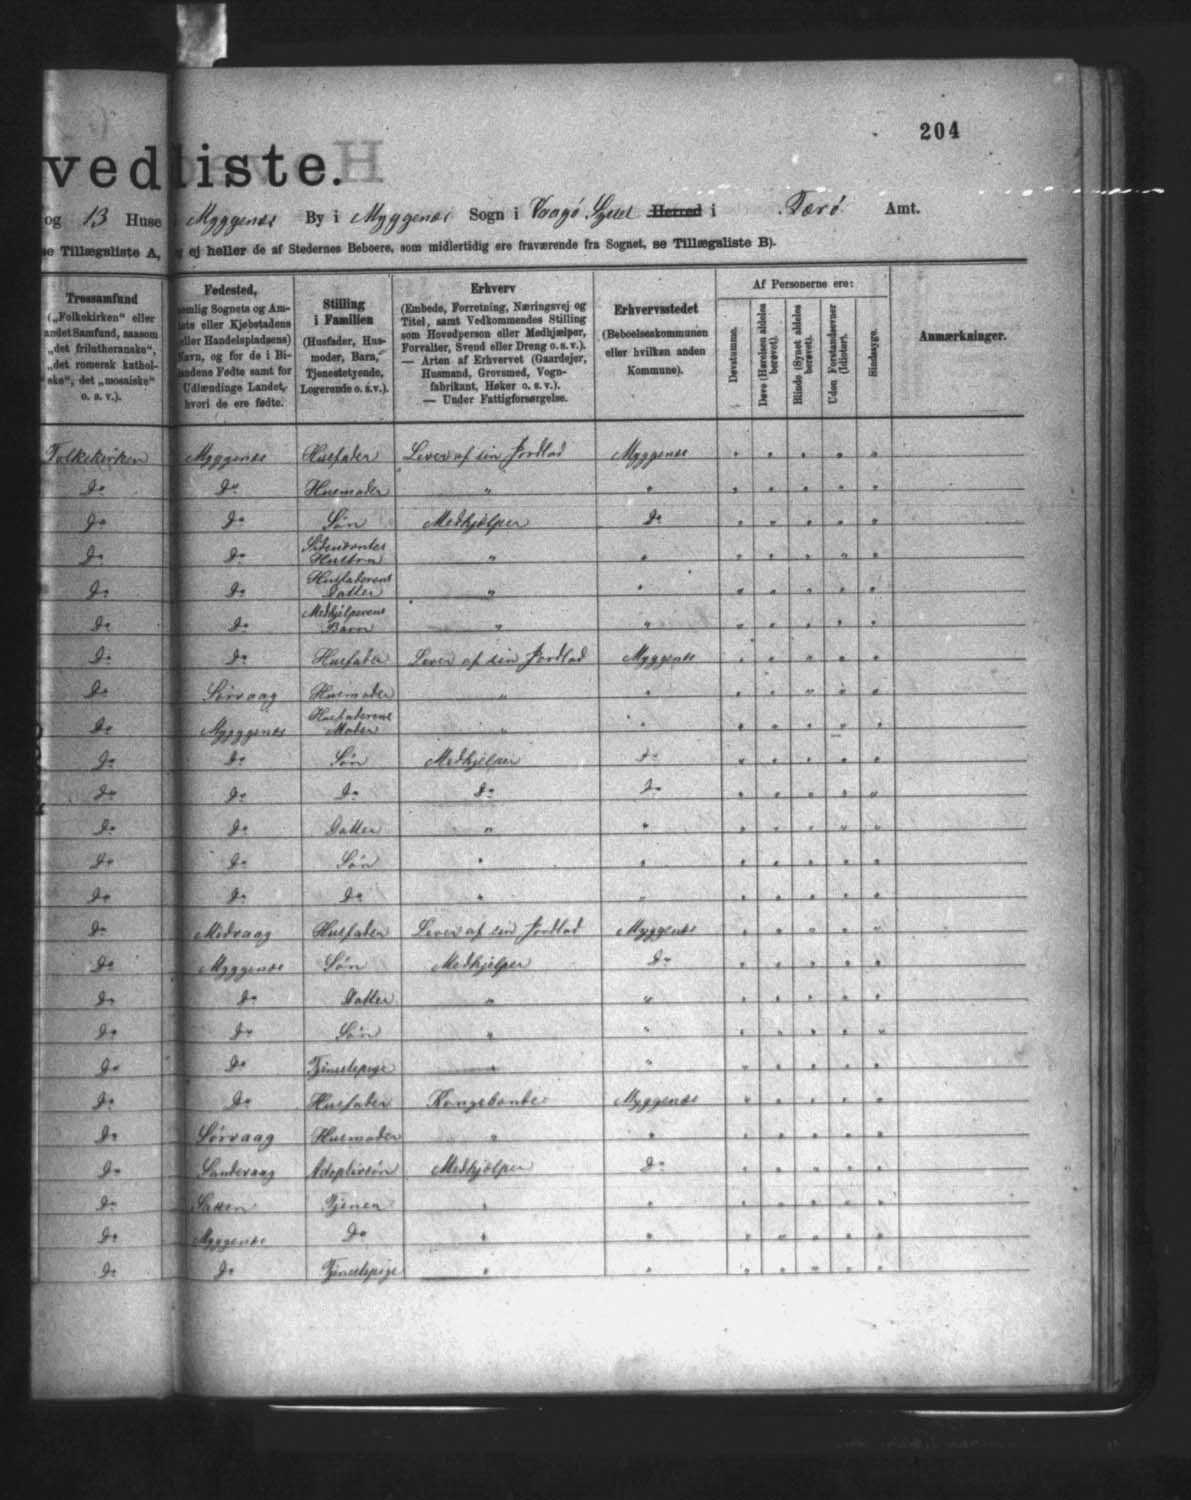 204
vedliste.
og 13 Huse i Myggenæs By i Myggenæs Sogn i Vaagø Syssel Herred i Færø Amt.
se Tillægsliste A, ej heller de af Stedernes Beboere, som midlertidig ere fraværende fra Sognet, se Tillægsliste B).
Trossamfund
(„Folkekirken“ eller
andet Samfund, saasom
„det frilutheranske“,
„det romersk kathol-
ske“, det „mosaiske“
o. s. v.).
Fødested,
nemlig Sognets og Am-
tets eller Kjøbstadens
(eller Handelspladsens)
Navn, og for de i Bi-
landene Fødte samt for
Udlændinge Landet,
hvori de ere fødte.
Stilling
i Familien
(Husfader, Hus-
moder, Barn,
Tjenestetyende,
Logerende o. s. v.).
Erhverv
(Embede, Forretning, Næringsvej og
Titel, samt Vedkommendes Stilling
som Hovedperson eller Medhjælper,
Forvalter, Svend eller Dreng o. s. v.).
— Arten af Erhvervet (Gaardejer,
Husmand, Grovsmed, Vogn-
fabrikant, Høker o. s. v.).
— Under Fattigforsørgelse.
Erhvervsstedet
(Beboelseskommunen
eller hvilken anden
Kommune).
Af Personerne ere:
Døvstumme.
Døve (Hørelsen aldeles berøvet).
Blinde (Synet aldeles berøvet).
Uden Forstandsevner (Idioter).
Sindssyge.
Anmærkninger.
Folkekirken Myggenæs Husfader Lever af sin Jordlod Myggenæs " " " " "
Do Do Husmoder " " " " " " "
Do Do Søn Medhjælper Do " " " " "
Do Do Sidstnævntes Hustru " " " " " " "
Do Do Husfaderens Datter " " " " " " "
Do Do Medhjelperens Barn " " " " " " "
Do Do Husfader Lever af sin Jordlod Myggenæs " " " " "
Do Sørvaag Husmoder " " " " " " "
Do Myggenæs Husfaderens Moder " " " " " " "
Do Do Søn Medhjelper Do " " " " "
Do Do Do Do Do " " " " "
Do Do Datter " " " " " " "
Do Do Søn " " " " " " "
Do Do Do " " " " " " "
Do Midvaag Husfader Lever af sin Jordlod Myggenæs " " " " "
Do Myggenæs Søn Medhjelper Do " " " " "
Do Do Datter " " " " " " "
Do Do Søn " " " " " " "
Do Do Tjenestepige " " " " " " "
Do Do Husfader Kongsbonde Myggenæs " " " " "
Do Sørvaag Husmoder " " " " " " "
Do Sandevaag Adoptivsøn Medhjælper Do " " " " "
Do Tjener " " " " " " "
Do Myggenæs Do " " " " " " "
Do Do Tjenestepige " " " " " " "